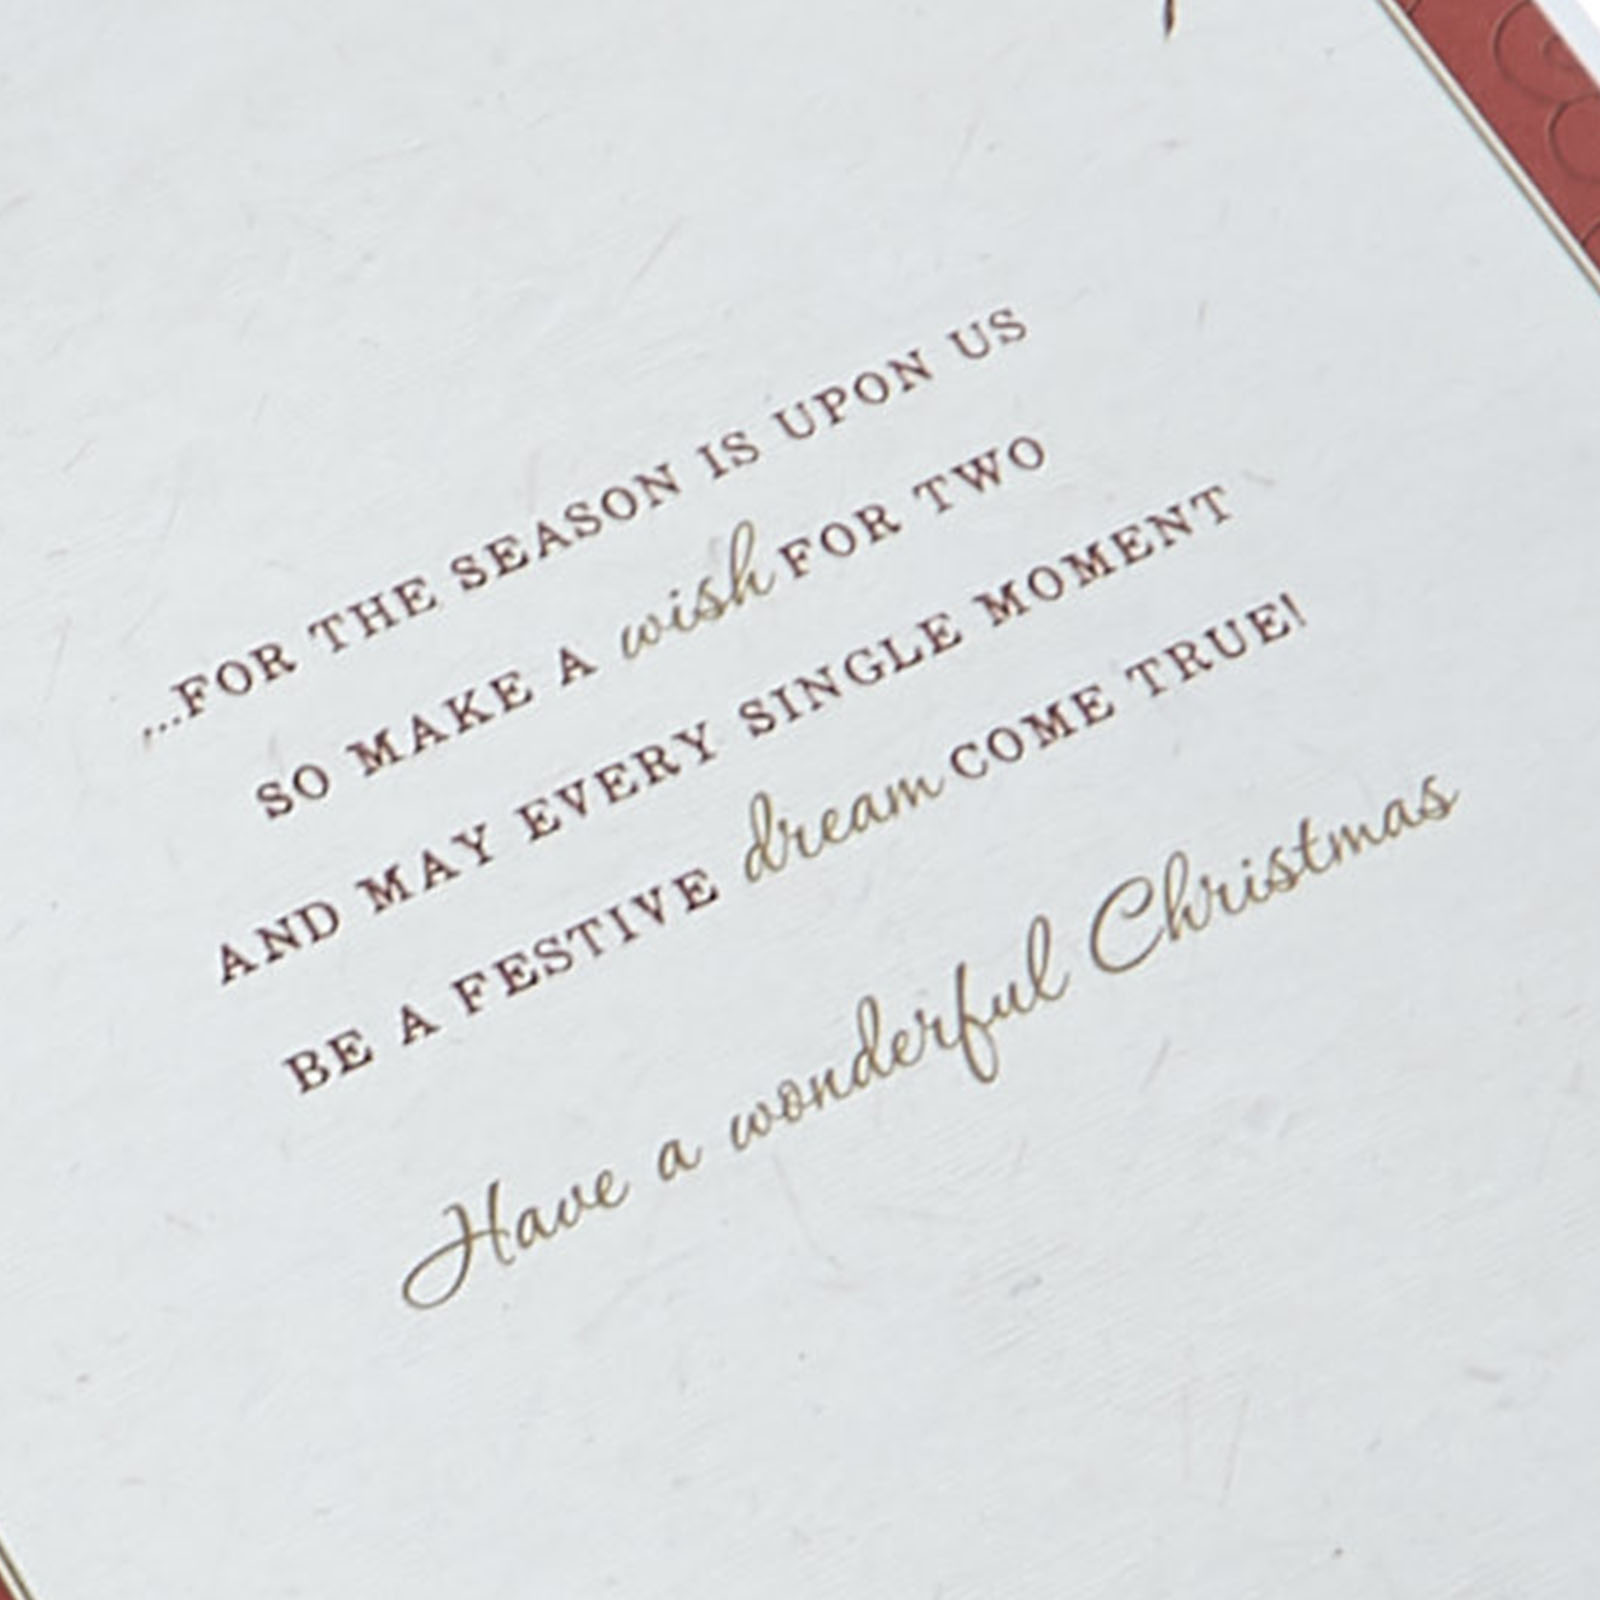 ...FOR THE SEASON IS UPON US
SO MAKE A wish FOR TWO
AND MAY EVERY SINGLE MOMENT
BE A FESTIVE dream COME TRUE!
Have a wonderful Christmas